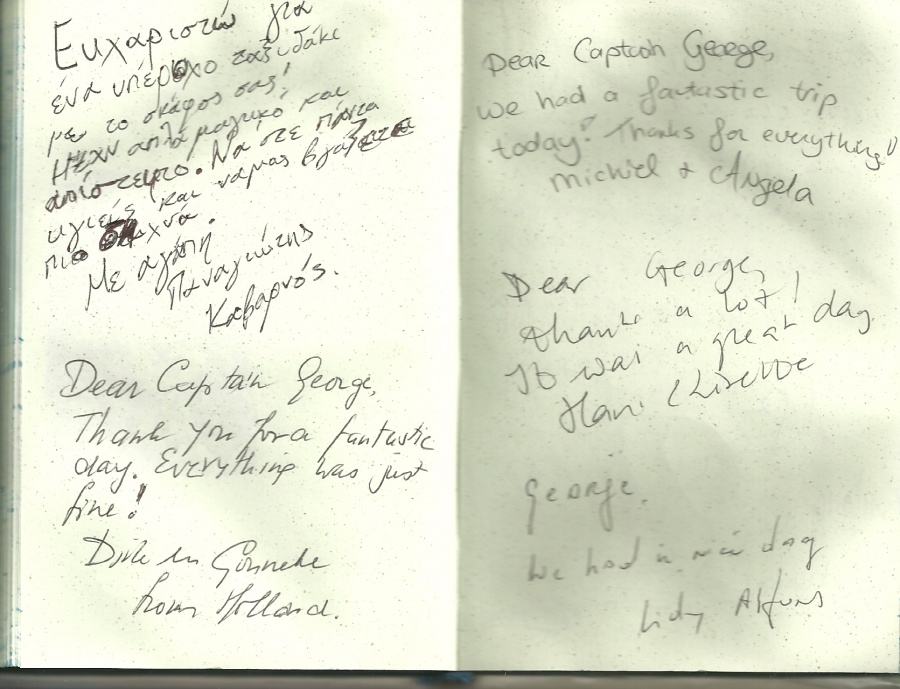 Ευχαριστώ για
ένα υπέροχο ταξιδάκι
με το σκάφος σας!
Ήταν απλά μαγικό και
απίστευτο. Να στε πάντα
υγιείς και να μας βγάζετε
πιο συχνά.
Με αγάπη
Παναγιώτης
Καβαρνός.
Dear Captain George,
Thank you for a fantastic
day. Everything was just
fine!
Dirk en Gonneke
from Holland.
Dear Captain George,
we had a fantastic trip
today! Thanks for everything!
Michiel + Angela
Dear George,
thanks a lot!
It was a great day
George.
We had a nice day